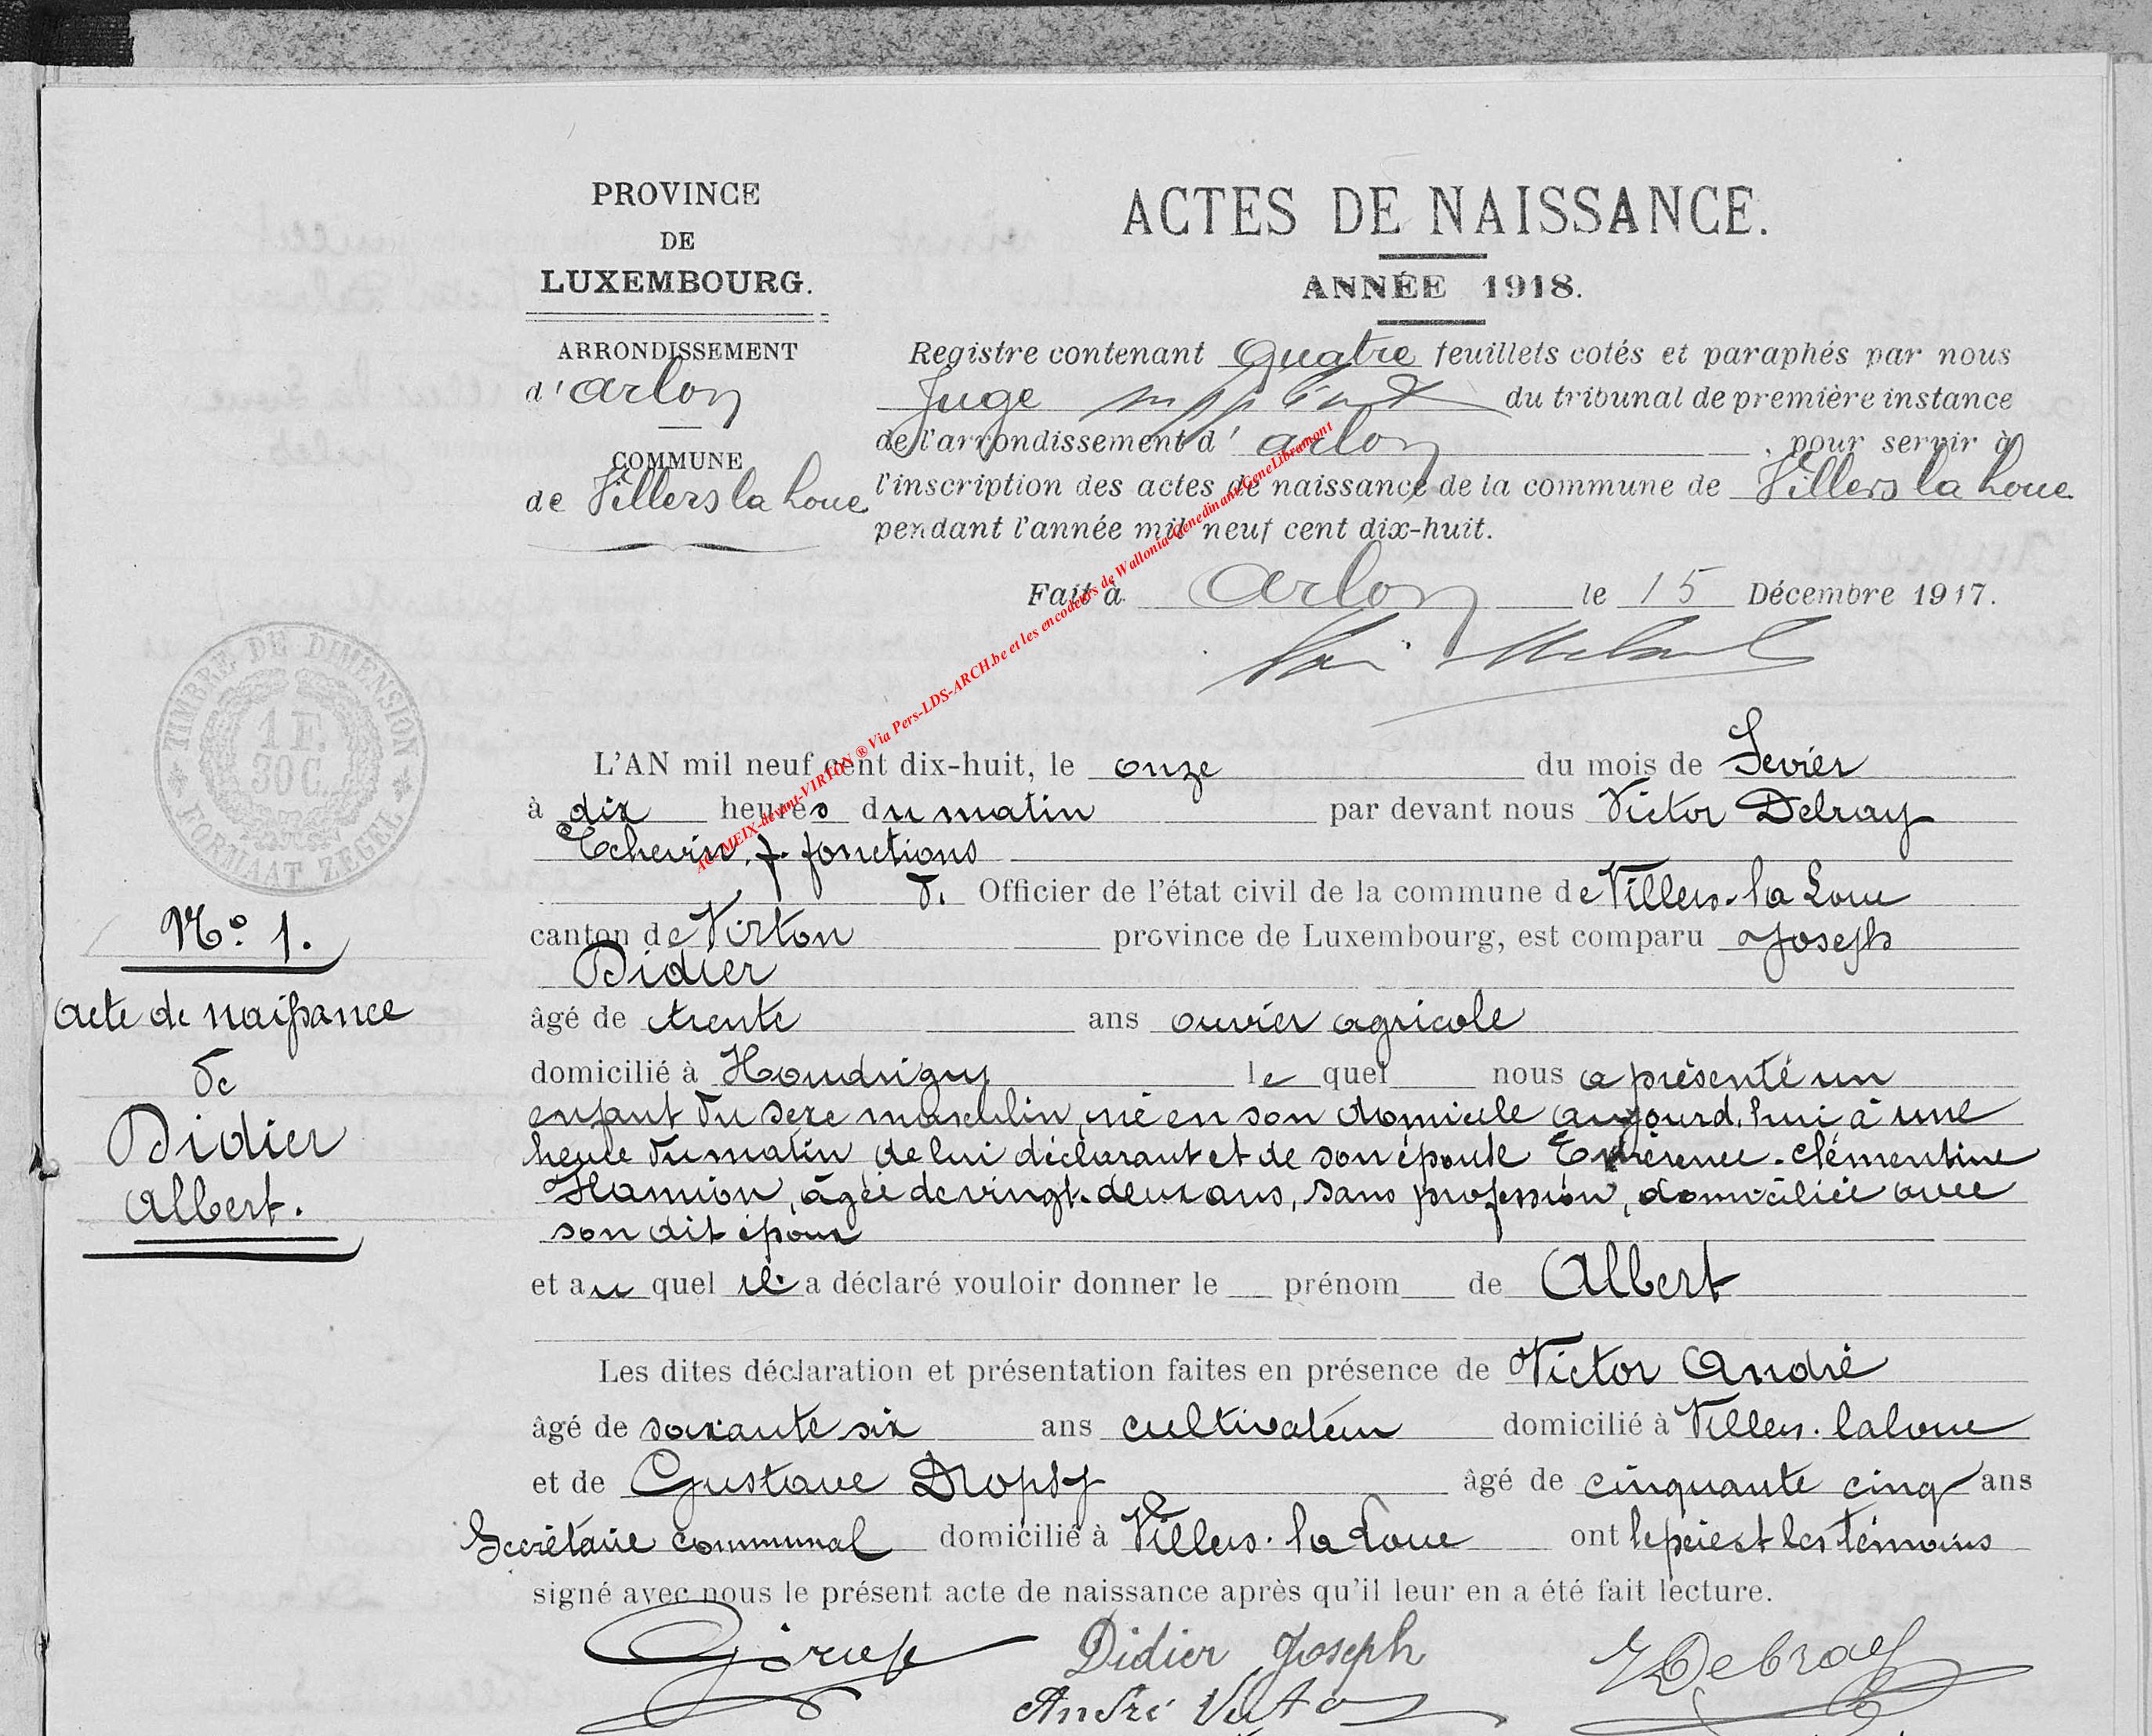 PROVINCE
DE
LUXEMBOURG.
ARRONDISSEMENT
d'Arlon
COMMUNE
de Villers la Loue
ACTES DE NAISSANCE.
ANNÉE 1918.
Registre contenant Quatre feuillets cotés et paraphés par nous
Juge suppléant du tribunal de première instance
de l'arrondissement d'Arlon, pour servir à
l'inscription des actes de naissance de la commune de Villers la Loue
pendant l'année mil neuf cent dix-huit.
Fait à Arlon le 15 Décembre 1917.
TIMBRE DE DIMENSION
1 F.
30 C.
FORMAAT ZEGEL
AG-MEIX-devant-VIRTON ® Via Pers-LDS-ARCH.be et les encodeurs de Wallonia-Genedinant-GeneLibramont
N° 1.
Acte de naissance
de
Didier
Albert.
L'AN mil neuf cent dix-huit, le onze du mois de
à dix heures du matin par devant nous Victor Debray
Echevin. f. fonctions
d. Officier de l'état civil de la commune de Villers-la Loue
canton de Virton province de Luxembourg, est comparu Joseph
Didier
âgé de trente ans ouvrier agricole
domicilié à Houdrigny lequel nous a présenté un
enfant du sexe masculin, né en son domicile aujourd'hui à une
heure du matin, de lui déclarant et de son épouse Clémentine
Hannion, âgée de vingt-deux ans, sans profession, domiciliée avec
son dit époux
et auquel il a déclaré vouloir donner le prénom de Albert
Les dites déclaration et présentation faites en présence de Victor André
âgé de soixante six ans cultivateur domicilié à Villers-la loue
et de Gustave Dropsy âgé de cinquante cinq ans
Secrétaire communal domicilié à Villers-la Loue ont le père et les témoins
signé avec nous le présent acte de naissance après qu'il leur en a été fait lecture.
Didier Joseph
V Debray
André Victor